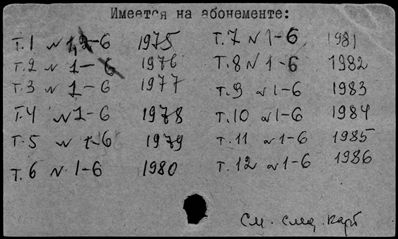 Имеется на абонементе:
Т.1 N 1,2-6 1975
Т.2 N 1-6 1976
Т.3 N 1-6 1977
Т.4 N 1-6 1978
Т.5 N 1-6 1979
Т.6 N 1-6 1980
Т.7 N 1-6 1981
Т.8 N 1-6 1982
Т.9 N 1-6 1983
Т.10 N 1-6 1984
Т.11 N 1-6 1985
Т.12 N 1-6 1986
См. след. карт